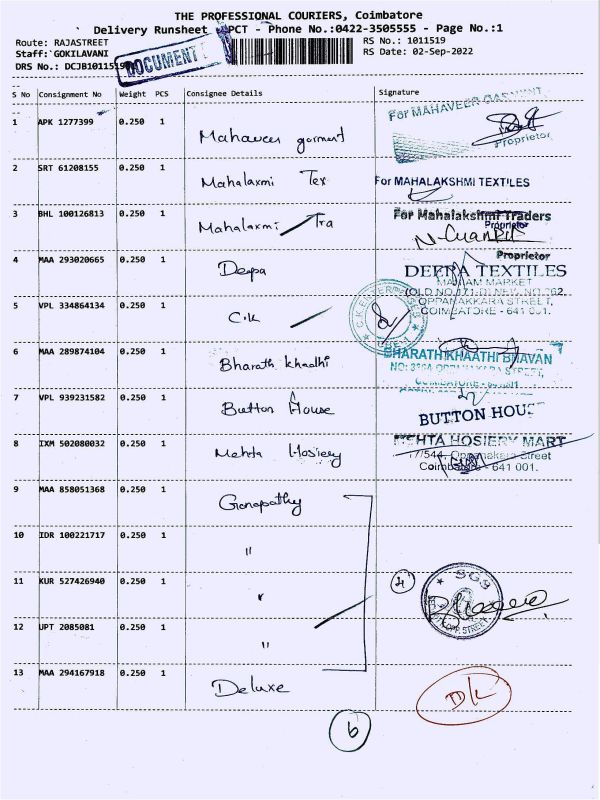 THE PROFESSIONAL COURIERS, Coimbatore
Delivery Runsheet PCT - Phone No.:0422-3505555 - Page No.:1
Route: RAJASTREET RS No.: 1011519
Staff: GOKILAVANI RS Date: 02-Sep-2022
DRS No.: DCJB1011519
DOCUMENT
S No Consignment No Weight PCS Consignee Details Signature
1 APK 1277399 0.250 1 Mahaveer garment For MAHAVEER GARMENT
Proprietor
2 SRT 61208155 0.250 1 Mahalaxmi Tex For MAHALAKSHMI TEXTILES
3 BHL 100126813 0.250 1 Mahalaxmi Tra For Mahalakshmi Traders
Proprietor
Proprietor
4 MAA 293020665 0.250 1 Deepa DEEPA TEXTILES
OPPANAKKARA STREET,
COIMBATORE - 641 001.
5 VPL 334864134 0.250 1 C.K C.K ENTERPRISES
6 MAA 289874104 0.250 1 Bharath khadhi BHARATH KHAATHI BHAVAN
OPPANAKARA STREET,
COIMBATORE - 641001
7 VPL 939231582 0.250 1 Button House BUTTON HOUSE
8 IXM 502080032 0.250 1 Mehta Hosiery MEHTA HOSIERY MART
17/544, Oppanakara Street
Coimbatore - 641 001.
9 MAA 858051368 0.250 1 Ganapathy
10 IDR 100221717 0.250 1 "
11 KUR 527426940 0.250 1 "
4
SGS
OPP. STREET
12 UPT 2085081 0.250 1 "
13 MAA 294167918 0.250 1 Deluxe D/L
6